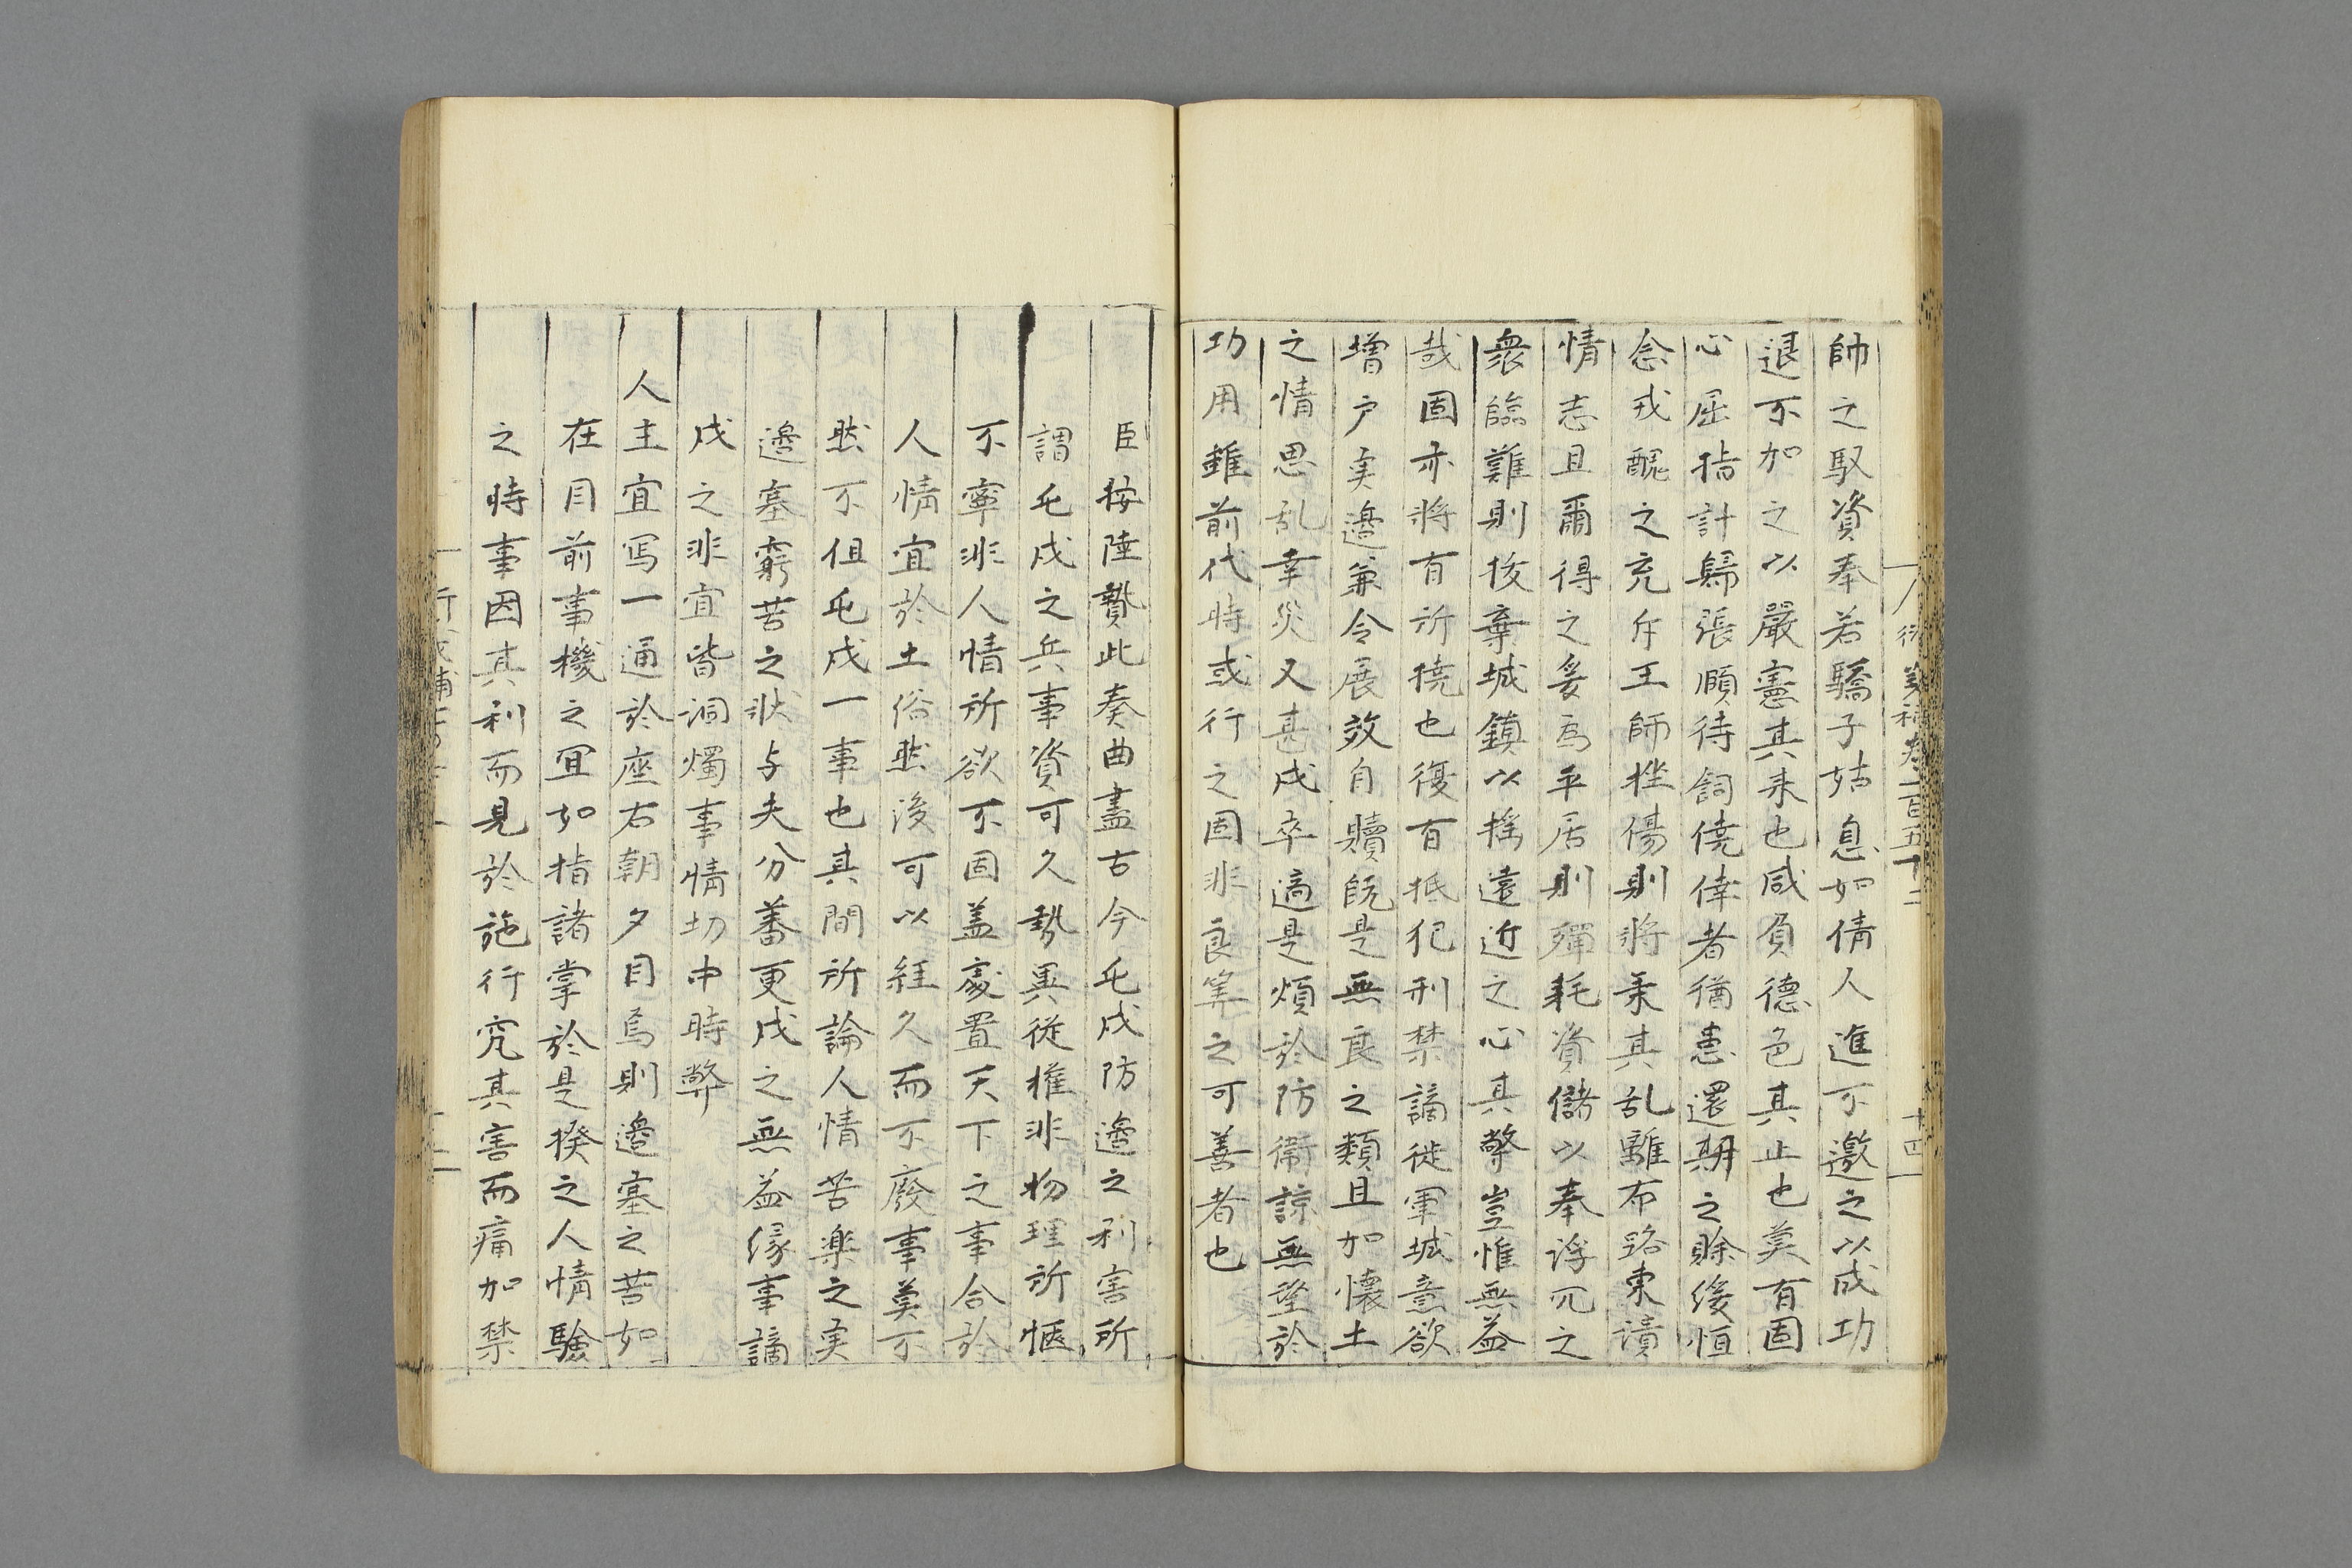 衍義補卷一百五十二
十四
帥之馭資奉若驕子姑息如倩人進不邀之以成功
退不加之以嚴憲其来也咸負德色其止也莫有固
心屈指計歸張頤待飼僥倖者猶患還期之賒緩恒
念戎醜之充斥王師挫傷則將乗其乱離布路東潰
情志且爾得之奚為平居則殫耗資儲以奉浮冗之
衆臨難則抜棄城鎮以揺遠近之心其弊豈惟無益
哉固亦将有所撓也復有抵犯刑禁謫徙軍城意欲
增户実邉兼令展效自贖既是無良之類且加懐土
之情思乱幸災又甚戍卒適是煩於防衛諒無望於
功用雖前代時或行之固非良筭之可善者也
臣按陸贄此奏曲盡古今屯戍防邉之利害所
謂屯戍之兵事資可久勢異従権非物理所愜
不寧非人情所欲不固盖處置天下之事合於
人情宜於土俗然後可以経久而不廢事莫不
然不但屯戍一事也其間所論人情苦楽之実
邉塞窮苦之状与夫分番更戍之無益縁事謫
戍之非宜皆洞燭事情切中時弊
人主宜写一通於座右朝夕目焉則邉塞之苦如
在目前事機之宜如指諸掌於是揆之人情驗
之時事因其利而見於施行究其害而痛加禁